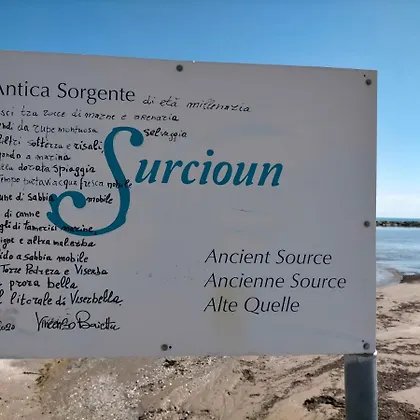 Antica Sorgente di età millenaria
esci tra rocce di marne e arenaria
da rupe montuosa selvaggia
filtri sottozza e risali
a marina
dorata spiaggia
tempo portavi acqua fresca nobile
dune di sabbia mobile
di canne
di tamerici marine
e altra malerba
lido a sabbia mobile
Torre Pedrera e Viserba
prora bella
litorale di Viserbella
Surcioun
Ancient Source
Ancienne Source
Alte Quelle